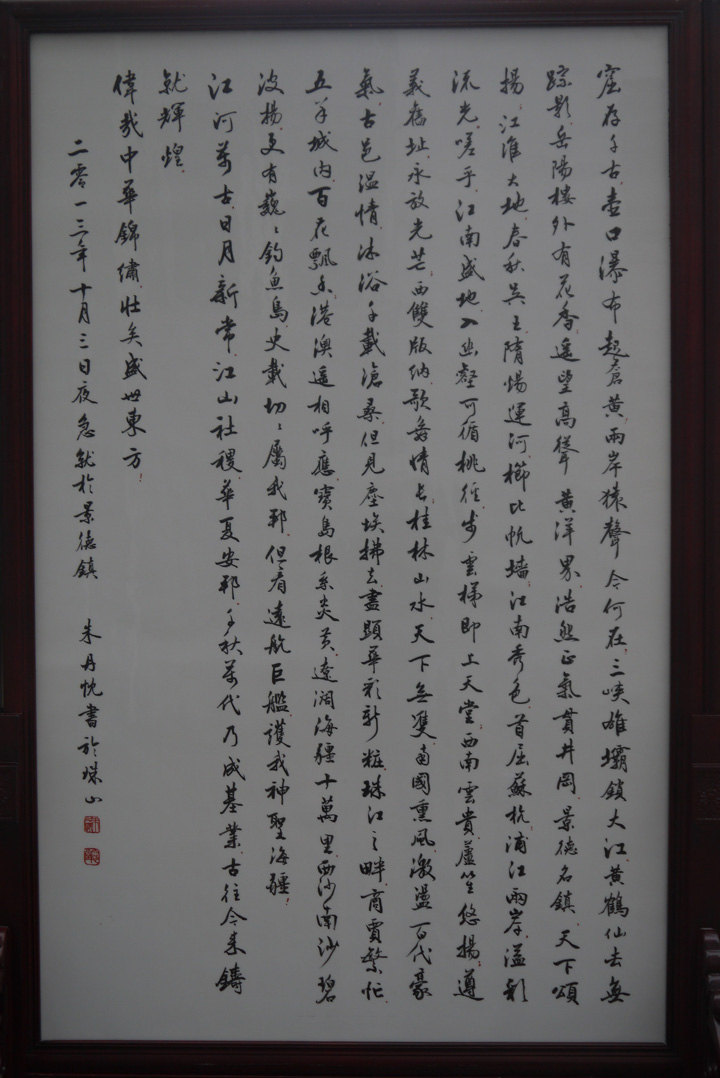 窟存千古壺口瀑布起蒼黃兩岸猿聲今何在三峽雄壩鎖大江黃鶴仙去無
踪影岳陽樓外有花香遥望高聳黄洋界浩然正氣貫井岡景德名鎮天下頌
揚江淮大地春秋吳王隋煬運河櫛比帆墻江南秀色首屈蘇杭浦江兩岸溢彩
流光嗟乎江南盛地入幽壑可循桃徑步雲梯即上天堂西南雲貴蘆笙悠揚遵
義舊址永放光芒西雙版纳歌舞情長桂林山水天下無雙南國熏風激盪百代豪
氣古邑溫情沐浴千載滄桑但見塵埃拂去盡顯華彩新粧珠江之畔商賈繁忙
五羊城内百花飄香港澳遥相呼應寶島根系炎黄遼濶海疆十萬里西沙南沙碧
波揚更有巍巍釣魚島史載切切屬我邦但看遠航巨艦護我神聖海疆！
江河萬古日月新常江山社稷華夏安邦千秋萬代乃成基業古往今来鑄
就輝煌
偉哉中華錦繡壯矣盛世東方！
二零一三年十月三日夜急就於景德鎮 朱丹忱書於珠山